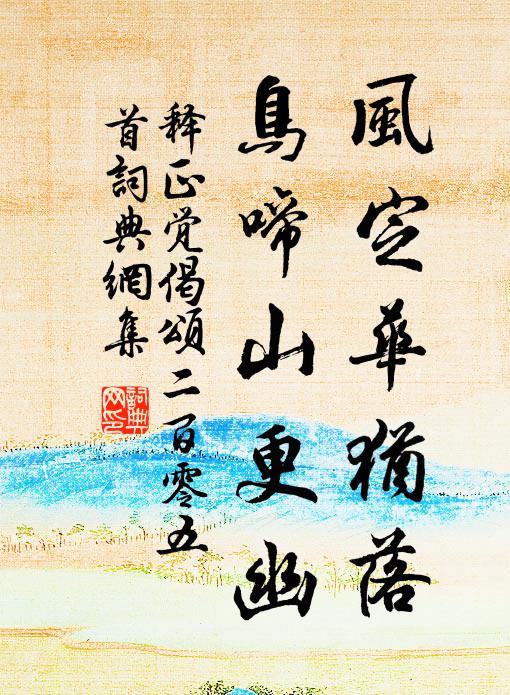 風定華猶落
鳥啼山更幽
释正觉偈頌二百零五
首詞典網集
詞典
网